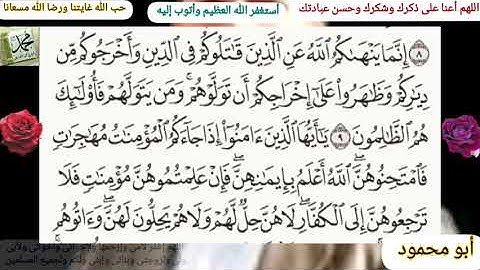 اللهم أعنا على ذكرك وشكرك وحسن عبادتك
أستغفر الله العظيم وأتوب إليه
حب الله غايتنا ورضا الله مسعانا
محمد
٨ إِنَّمَا يَنْهَىٰكُمُ ٱللَّهُ عَنِ ٱلَّذِينَ قَٰتَلُوكُمْ فِى ٱلدِّينِ وَأَخْرَجُوكُم مِّن
دِيَٰرِكُمْ وَظَٰهَرُوا۟ عَلَىٰٓ إِخْرَاجِكُمْ أَن تَوَلَّوْهُمْ ۚ وَمَن يَتَوَلَّهُمْ فَأُو۟لَٰٓئِكَ
هُمُ ٱلظَّٰلِمُونَ ٩ يَٰٓأَيُّهَا ٱلَّذِينَ ءَامَنُوٓا۟ إِذَا جَآءَكُمُ ٱلْمُؤْمِنَٰتُ مُهَٰجِرَٰتٍ
فَٱمْتَحِنُوهُنَّ ۖ ٱللَّهُ أَعْلَمُ بِإِيمَٰنِهِنَّ ۖ فَإِنْ عَلِمْتُمُوهُنَّ مُؤْمِنَٰتٍ فَلَا
تَرْجِعُوهُنَّ إِلَى ٱلْكُفَّارِ ۖ لَا هُنَّ حِلٌّ لَّهُمْ وَلَا هُمْ يَحِلُّونَ لَهُنَّ ۖ وَءَاتُوهُم
أبو محمود